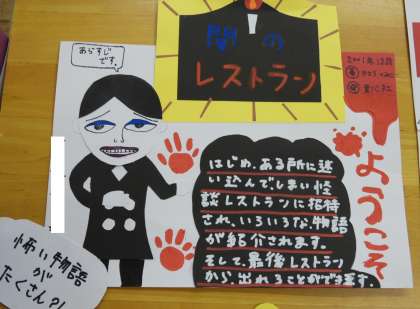 闇の
レストラン
あらすじ
です。
ようこそ
はじめ、ある所に迷
い込んでしまい怪
談レストランに招待
され、いろいろな、物語
が紹介されます。
そして、最後レストラン
から、出れることができます。
怖い物語
が
たくさん?!